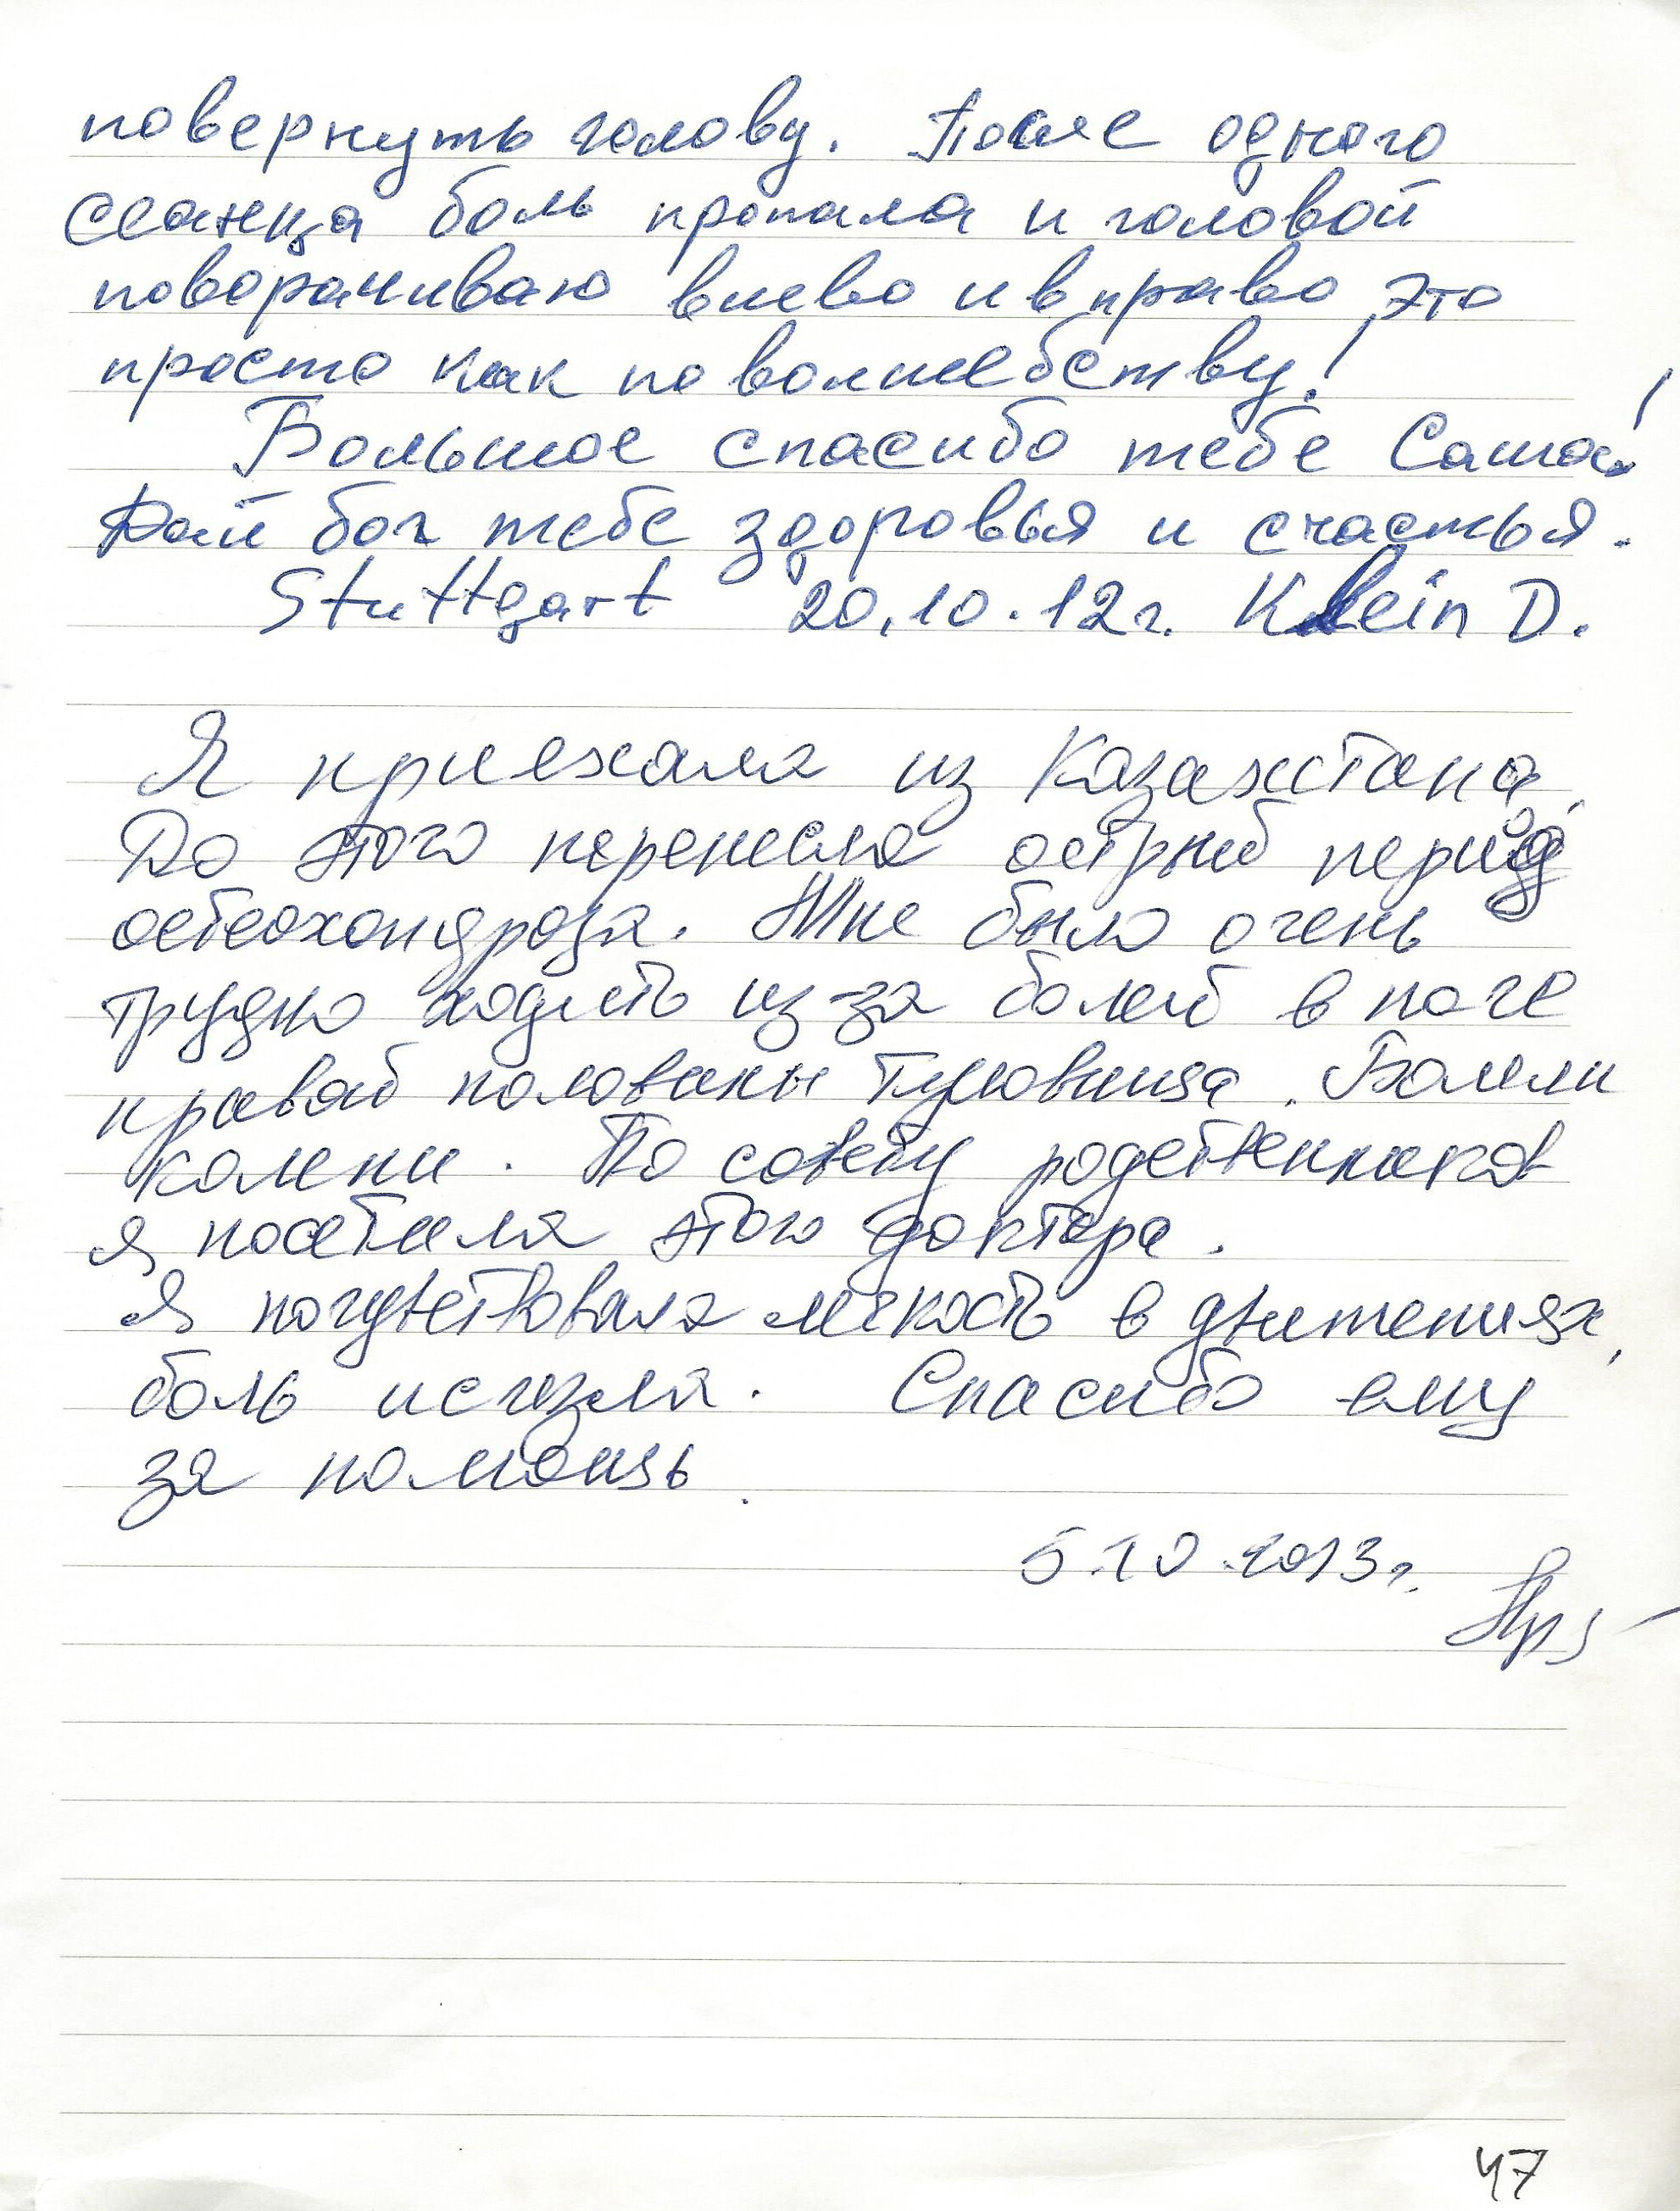 повернуть голову. После одного
сеанеца боль пропала и головой
поворачиваю влево и вправо это
просто как по волшебству!
Большое спасибо тебе Саша!
Дай бог тебе здоровья и счастья.
Stuttgart 20.10.12г. Klein D.
Я приехала из Казахстана,
До этого перенесла острый период
остеохондроза. Мне было очень
трудно ходить из-за болей в ноге
правой половины туловища. Болели
колени. По совету родственников
я посетила этого доктора.
Я почувствовала лёгкость в движениях,
боль исчезла. Спасибо ему
за помощь.
5.10.2013г.
47